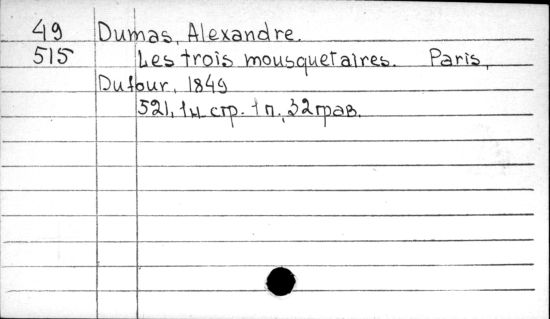 49 Dumas, Alexandre.
515 Les trois mousquetaires. Paris,
Dufour, 1849
521, 1 н. стр. 1 п., 32 грав.